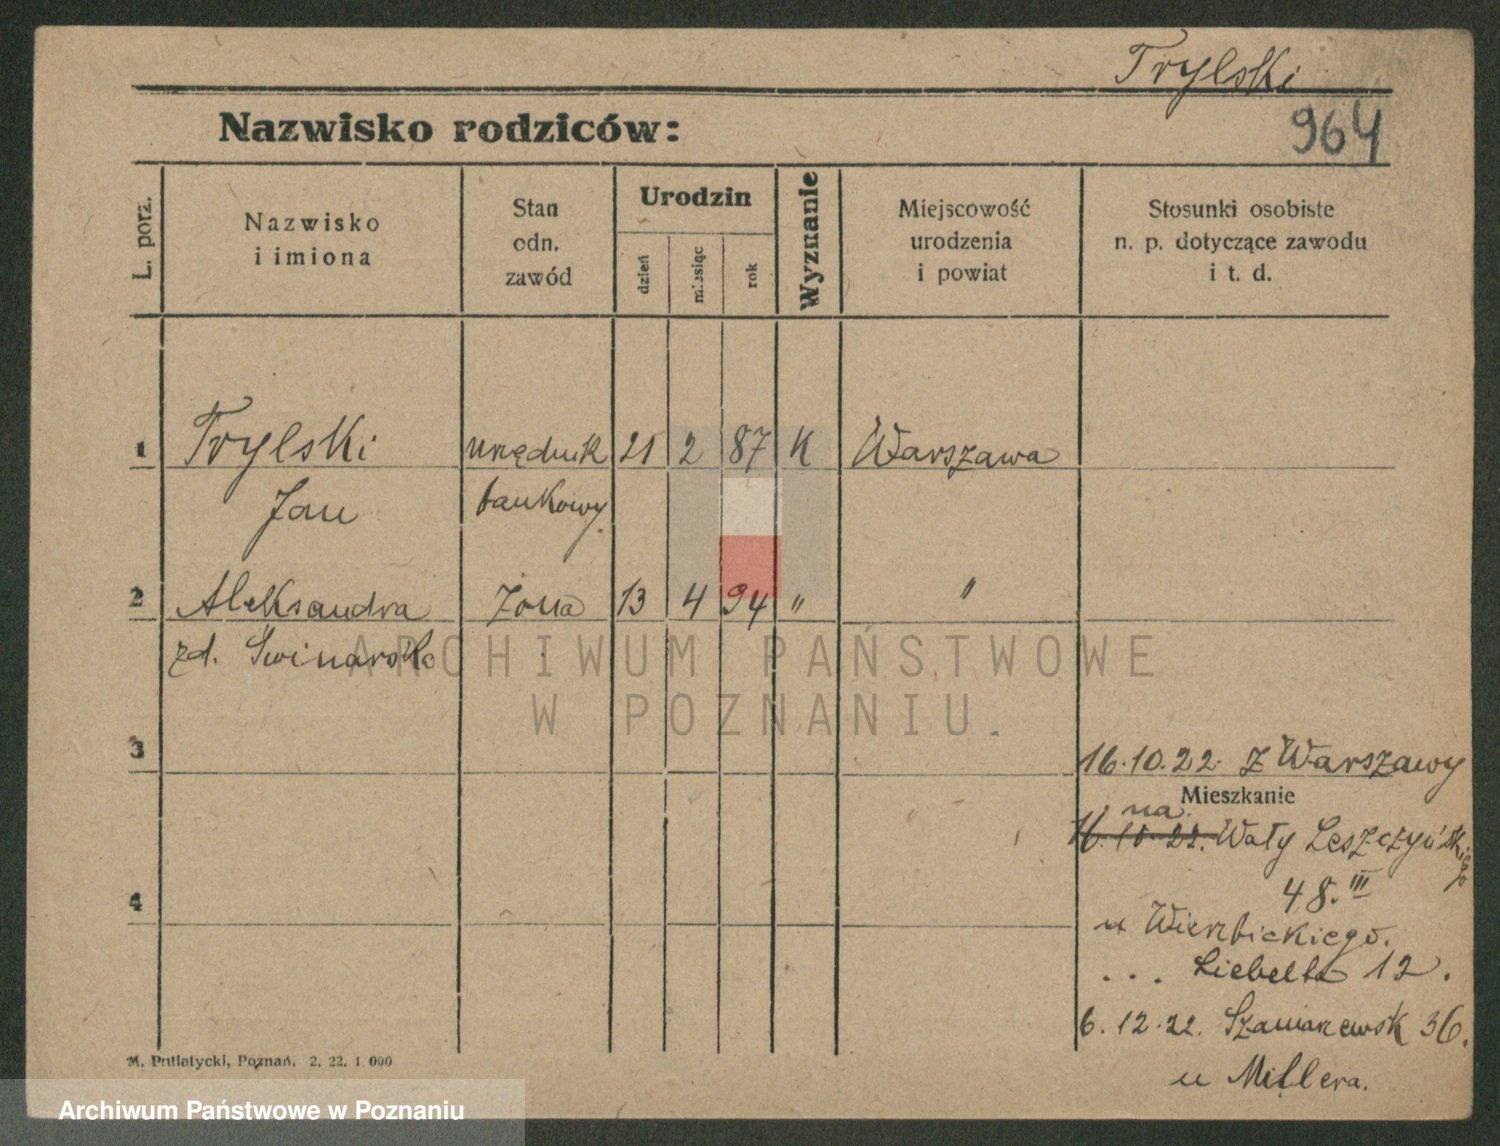 Trylski
Nazwisko rodziców:
964
L. porz.
Nazwisko
i imiona
Stan
odn.
zawód
Urodzin
dzień
miesiąc
rok
Wyznanie
Miejscowość
urodzenia
i powiat
Stosunki osobiste
n. p. dotyczące zawodu
i t. d.
1 Trylski urzędnik 21 2 87 K Warszawa
Jan bankowy.
2 Aleksandra żona 13 4 94 " "
zd. Świnarska
ARCHIWUM PAŃSTWOWE
W POZNANIU.
3
16.10.22. z Warszawy
Mieszkanie
na
16.10.22. Wały Leszczyńskiego
48.III
4
u Wierzbickiego.
... Liebelta 12.
6.12.22. Szamarzewsk 36.
u Millera.
M. Putiatycki, Poznań. 2. 22. 1 000
Archiwum Państwowe w Poznaniu